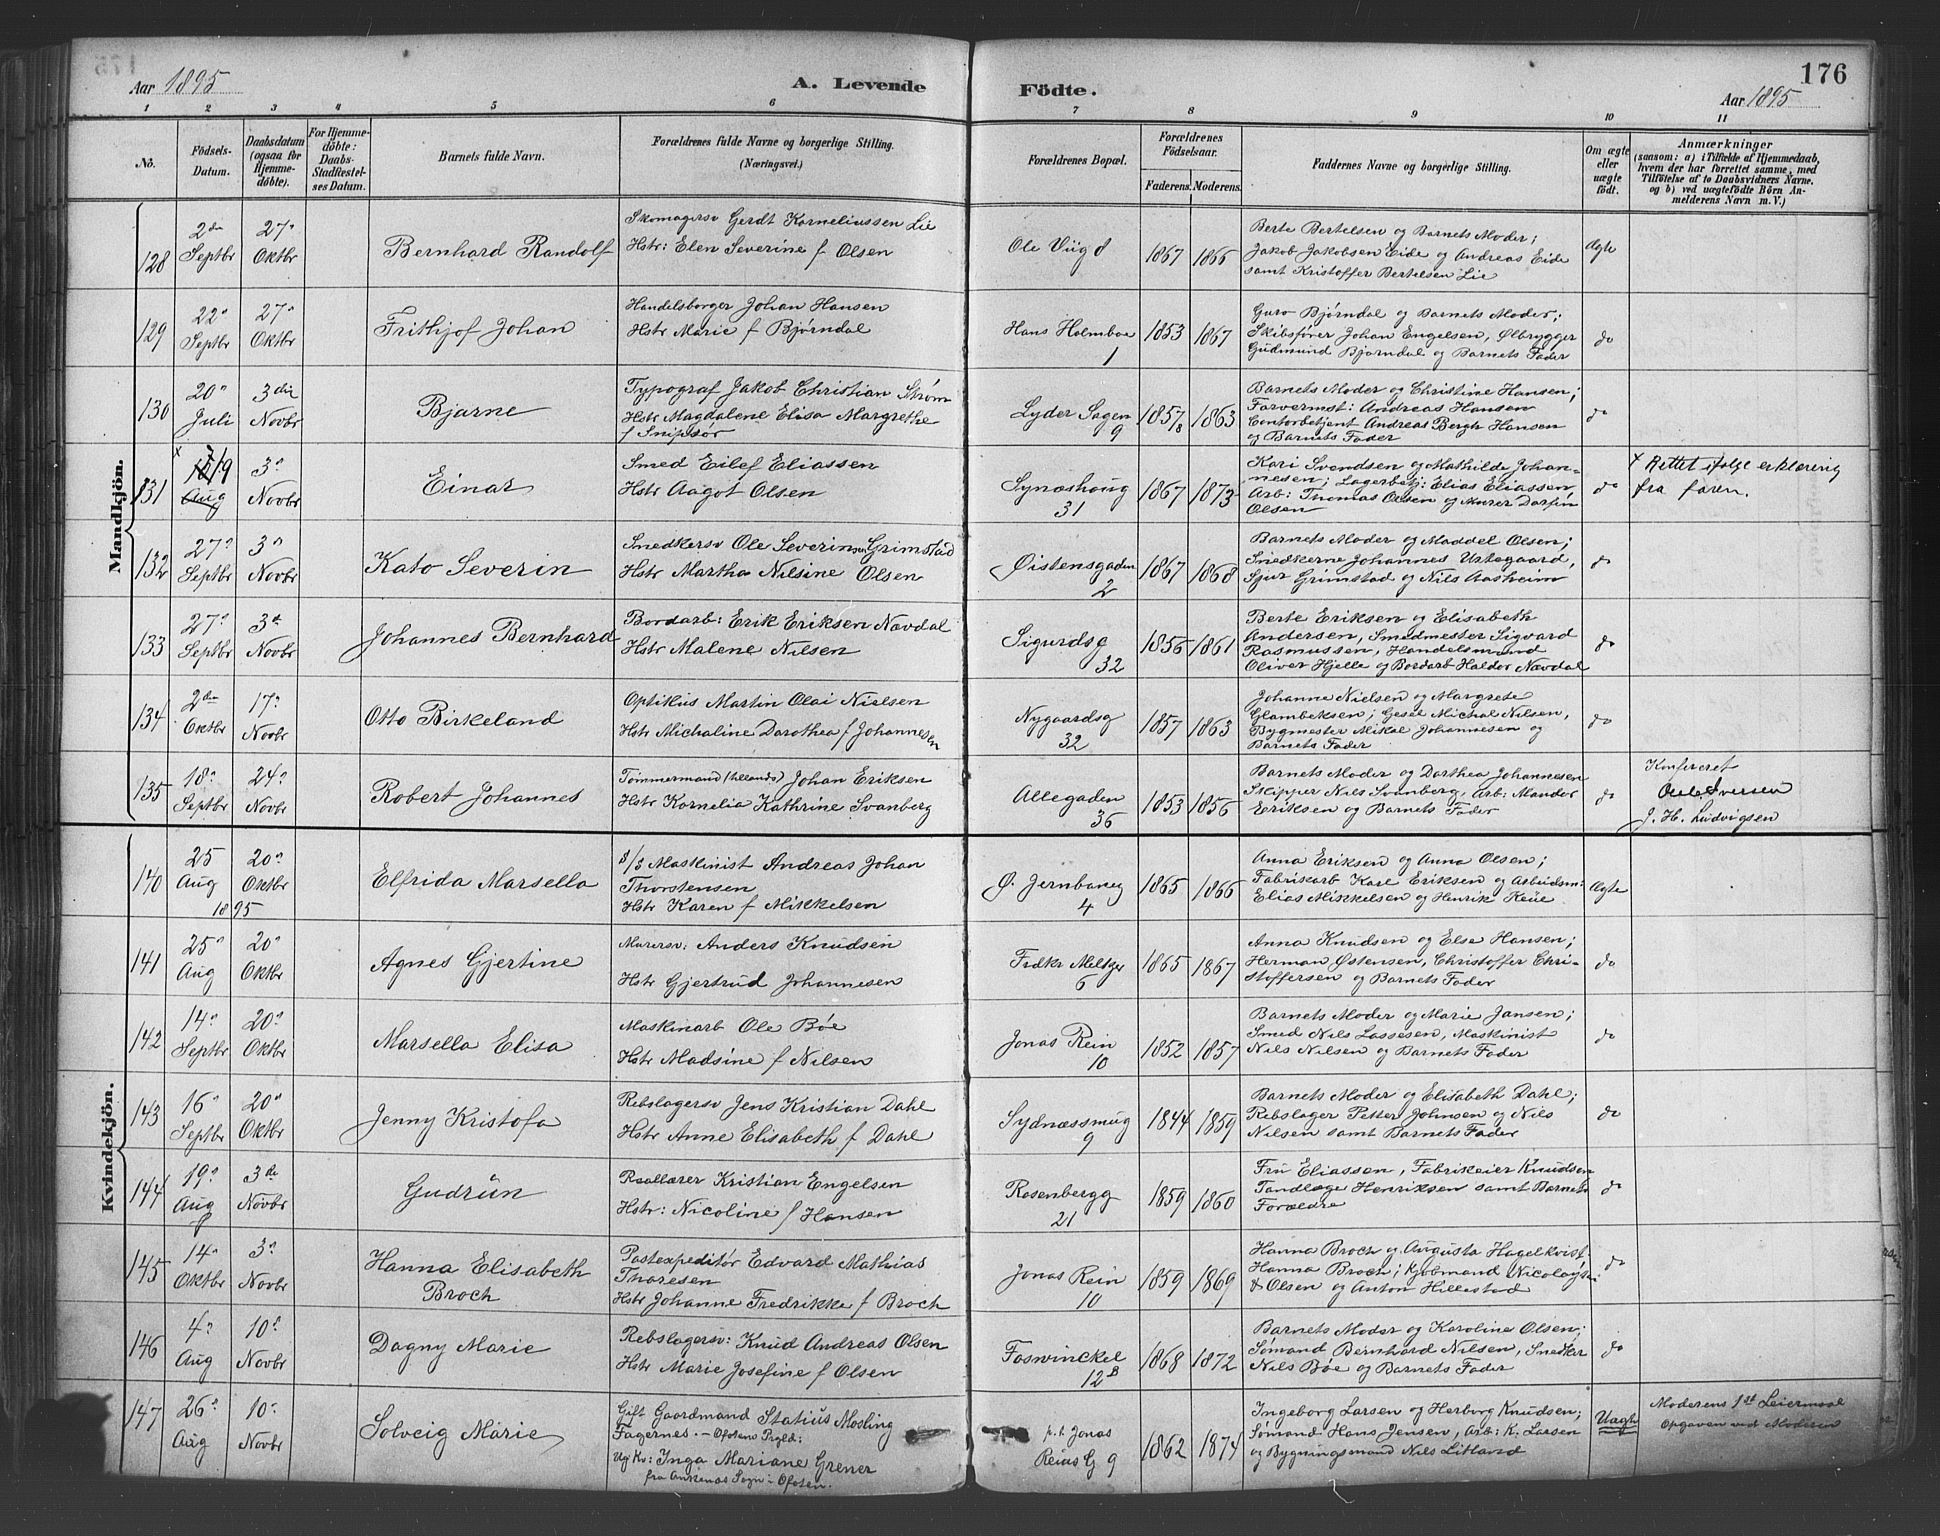 176
Aar 1895
A. Levende
Födte.
Aar 1895
1 2 3 4 5 6 7 8 9 10 11
No.
Födsels-Datum.
Daabsdatum (ogsaa for Hjemmedöbte).
For Hjemmedöbte: Daabs-Stadfæstelses Datum.
Barnets fulde Navn.
Forældrenes fulde Navne og borgerlige Stilling. (Næringsvei.)
Forældrenes Bopæl.
Forældrenes Födselsaar.
Faderens. Moderens.
Faddernes Navne og borgerlige Stilling.
Om ægte eller uægte födt.
Anmærkninger
(saasom: a) i Tilfælde af Hjemmedaab,
hvem der har forrettet samme, med
Tilföielse af to Daabsvidners Navne,
og b) ved uægtefödte Börn An-
melderens Navn m. V.)
Mandkjön.
128
2den Septbr
27 Oktbr
Bernhard Randolf
Skomagersv Gerdt Korneliussen Lie
Hstr: Elen Severine f Olsen
Ole Viig
1867 1866
Berte Bertelsen og Barnets Moder;
Jakob Jakobsen Eide og Andreas Eide
samt Kristoffer Bertelsen Lie
Ægte
129
22 Septbr
27 Oktbr
Frithjof Johan
Handelsborger Johan Hansen
Hstr Marie f Bjørndal
Hans Holmboe
1
1853 1867
Guro Bjørndal og Barnets Moder;
Skibsfører Johan Engelsen, Ølbrygger
Gudmund Bjørndal og Barnets Fader
do
130
20 Juli
3die Novbr
Bjarne
Typograf Jakob Christian Strøm
Hstr Magdalene Elisa Margrethe
f Snipsør
Lyder Sagen
9
1857/8 1863
Barnets Moder og Christine Hansen;
Farvermst: Andreas Hansen
Contorbetjent Andreas Bergh Hansen
og Barnets Fader
do
131
Aug
3 Novbr
Einar
Smed Eilef Eliassen
Hstr Aagot Olsen
Synæshoug
31
1867 1873
Kari Svendsen og Mathilde Johan-
nesen; Lagerbetj: Elias Eliassen
Arb: Thomas Olsen og Murer Dorfin
Olsen
do
x Rettet ifølge erklæring
fra faren.
132
27 Septbr
3 Novbr
Kato Severin
Snedkersv Ole Severinsen Grimstad
Hstr Martha Nilsine Olsen
Øistensgaden
2
1867 1868
Barnets Moder og Maddel Olsen;
Snedkerne Johannes Urtegaard,
Sjur Grimstad og Nils Aasheim
do
133
27 Septbr
3d Novbr
Johannes Bernhard
Bordarb: Erik Eriksen Nævdal
Hstr Malene Nilsen
Sigurdsg
32
1856 1861
Berte Eriksen og Elisabeth
Andersen, Smedmester Sigvard
Rasmussen, Handelsmand
Oliver Hjelle og Bordarb Haldor Nævdal
do
134
2den Oktbr
17 Novbr
Otto Birkeland
Optikus Martin Olai Nielsen
Hstr Michaline Dorothea f Johannesen
Nygaardsg
32
1857 1863
Johanne Nielsen og Margrete
Glambeksen; Gesel Michal Nilsen,
Bygmester Mikal Johannesen og
Barnets Fader
do
135
18 Septbr
24 Novbr
Robert Johannes
Tømmermand (tillands) Johan Eriksen
Hstr Kornelia Kathrine Svanberg
Allegaden
36
1853 1856
Barnets Moder og Dorthea Johannesen
Skipper Nils Svanberg, Arb: Mandor
Eriksen og Barnets Fader
do
Konfereret
Iversen
J. H. Ludvigsen
Kvindekjön.
140
25 Aug 1895
20 Oktbr
Elfrida Marsella
S/S Maskinist Andreas Johan
Thorstensen
Hstr Karen f Mikkelsen
Ø. Jernbaneg
4
1865 1866
Anna Eriksen og Anna Olsen;
Fabrikarb Karl Eriksen og Arbeidsm:
Elias Mikkelsen og Henrik Keue
Ægte
141
25 Aug
20 Oktbr
Agnes Gjertine
Murersv: Anders Knudsen
Hstr Gjertrud Johannesen
Fredkr Meltzer
6
1865 1867
Anna Knudsen og Else Hansen;
Herman Østensen, Christoffer Chri-
stoffersen og Barnets Fader
do
142
14 Septbr
20 Oktbr
Marsella Elisa
Maskinarb Ole Bøe
Hstr Madsine f Nilsen
Jonas Rein
10
1852 1857
Barnets Moder og Marie Jansen;
Smed Nils Lassesen, Maskinist
Nils Nilsen og Barnets Fader
do
143
16 Septbr
20 Oktbr
Jenny Kristofa
Rebslagersv Jens Kristian Dahl
Hstr Anne Elisabeth f Dahl
Sydnæssmug
9
1844 1859
Barnets Moder og Elisabeth Dahl;
Rebslager Petter Johnsen og Nils
Nilsen samt Barnets Fader
do
144
19 Aug
3de Novbr
Gudrün
Reallærer Kristian Engelsen
Hstr: Nicoline f Hansen
Rosenbergg
21
1859 1860
Fru Eliassen, Fabrikeier Knudsen
Tandlæge Henriksen samt Barnets
Forældre
do
145
14 Oktbr
3 Novbr
Hanna Elisabeth
Broch
Postexpeditör Edvard Mathias
Thoresen
Hstr Johanne Fredrikke f Broch
Jonas Rein
10
1859 1869
Hanna Broch og Augusta Hagelkvist
Hanna Broch; Kjøbmand Nicolaysen
& Olsen og Anton Hillestad
do
146
4 Aug
10 Novbr
Dagny Marie
Rebslagersv: Knud Andreas Olsen
Hstr Marie Josefine f Olsen
Fosvinckel
12B
1868 1872
Barnets Moder og Karoline Olsen;
Sømand Bernhard Nilsen, Snedker
Nils Bøe og Barnets Fader
do
147
26 Aug
10 Novbr
Solveig Marie
Gift Gaardmand Statius Mosling
Fagernes - Ofotens Prgld:
Ug: Kv: Inga Mariane Grener
fra Ankenæs Sogn - Ofoten.
p.t. Jonas
Reins G 9
1862 1874
Ingeborg Larsen og Herborg Knudsen;
Sømand Hans Jensen, Arb: K. Larsen
og Bygningsmand Nils Litland
Uægte
Moderens 1st Leiermaal
Opgaven ved Moderen